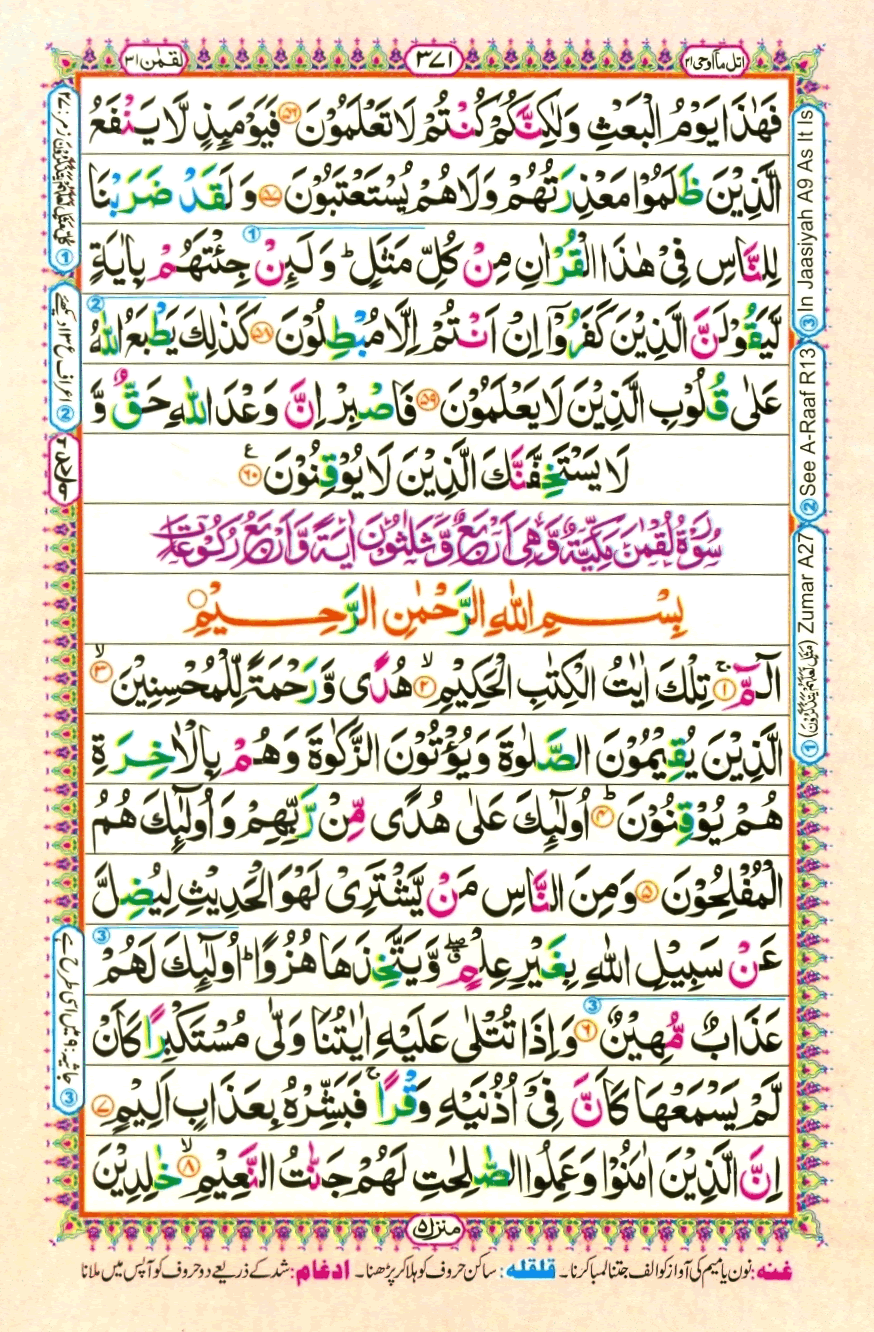 اتل مآ اوحی ۲۱
۳۷۱
لقمٰن ۳۱
فَهٰذَا يَوْمُ الْبَعْثِ وَلٰكِنَّكُمْ كُنْتُمْ لَا تَعْلَمُوْنَ ۵۶ فَيَوْمَئِذٍ لَّا يَنْفَعُ
الَّذِيْنَ ظَلَمُوْا مَعْذِرَتُهُمْ وَلَا هُمْ يُسْتَعْتَبُوْنَ ۵۷ وَلَقَدْ ضَرَبْنَا
لِلنَّاسِ فِیْ هٰذَا الْقُرْاٰنِ مِنْ كُلِّ مَثَلٍ ؕ وَلَئِنْ جِئْتَهُمْ بِاٰيَةٍ
لَّيَقُوْلَنَّ الَّذِيْنَ كَفَرُوْۤا اِنْ اَنْتُمْ اِلَّا مُبْطِلُوْنَ ۵۸ كَذٰلِكَ يَطْبَعُ اللّٰهُ
عَلٰی قُلُوْبِ الَّذِيْنَ لَا يَعْلَمُوْنَ ۵۹ فَاصْبِرْ اِنَّ وَعْدَ اللّٰهِ حَقٌّ وَّ
لَا يَسْتَخِفَّنَّكَ الَّذِيْنَ لَا يُوْقِنُوْنَ ۶۰ ع
سُوْرَةُ لُقْمٰنَ مَكِّيَّةٌ وَّهِیَ اَرْبَعٌ وَّثَلٰثُوْنَ اٰيَةً وَّاَرْبَعُ رُكُوْعَاتٍ
بِسْمِ اللّٰهِ الرَّحْمٰنِ الرَّحِيْمِ
الٓمّٓ ۱ ۚ تِلْكَ اٰيٰتُ الْكِتٰبِ الْحَكِيْمِ ۲ ۙ هُدًی وَّرَحْمَةً لِّلْمُحْسِنِيْنَ ۳ ۙ
الَّذِيْنَ يُقِيْمُوْنَ الصَّلٰوةَ وَيُؤْتُوْنَ الزَّكٰوةَ وَهُمْ بِالْاٰخِرَةِ
هُمْ يُوْقِنُوْنَ ۴ ؕ اُولٰٓئِكَ عَلٰی هُدًی مِّنْ رَّبِّهِمْ وَاُولٰٓئِكَ هُمُ
الْمُفْلِحُوْنَ ۵ وَمِنَ النَّاسِ مَنْ يَّشْتَرِیْ لَهْوَ الْحَدِيْثِ لِيُضِلَّ
عَنْ سَبِيْلِ اللّٰهِ بِغَيْرِ عِلْمٍ ۖۗ وَّيَتَّخِذَهَا هُزُوًا ؕ اُولٰٓئِكَ لَهُمْ
عَذَابٌ مُّهِيْنٌ ۶ وَاِذَا تُتْلٰی عَلَيْهِ اٰيٰتُنَا وَلّٰی مُسْتَكْبِرًا كَاَنْ
لَّمْ يَسْمَعْهَا كَاَنَّ فِیْۤ اُذُنَيْهِ وَقْرًا ۚ فَبَشِّرْهُ بِعَذَابٍ اَلِيْمٍ ۷
اِنَّ الَّذِيْنَ اٰمَنُوْا وَعَمِلُوا الصّٰلِحٰتِ لَهُمْ جَنّٰتُ النَّعِيْمِ ۸ ۙ خٰلِدِيْنَ
منزل ۵
غنه: نون یا میم کی آواز کو الف جتنا لمبا کرنا۔ قلقله: ساکن حروف کو ہلا کر پڑھنا۔ ادغام: شد کے ذریعے دو حروف کو آپس میں ملانا
③ In Jaasiyah A9 As It Is
② See A-Raaf R13
① Zumar A27